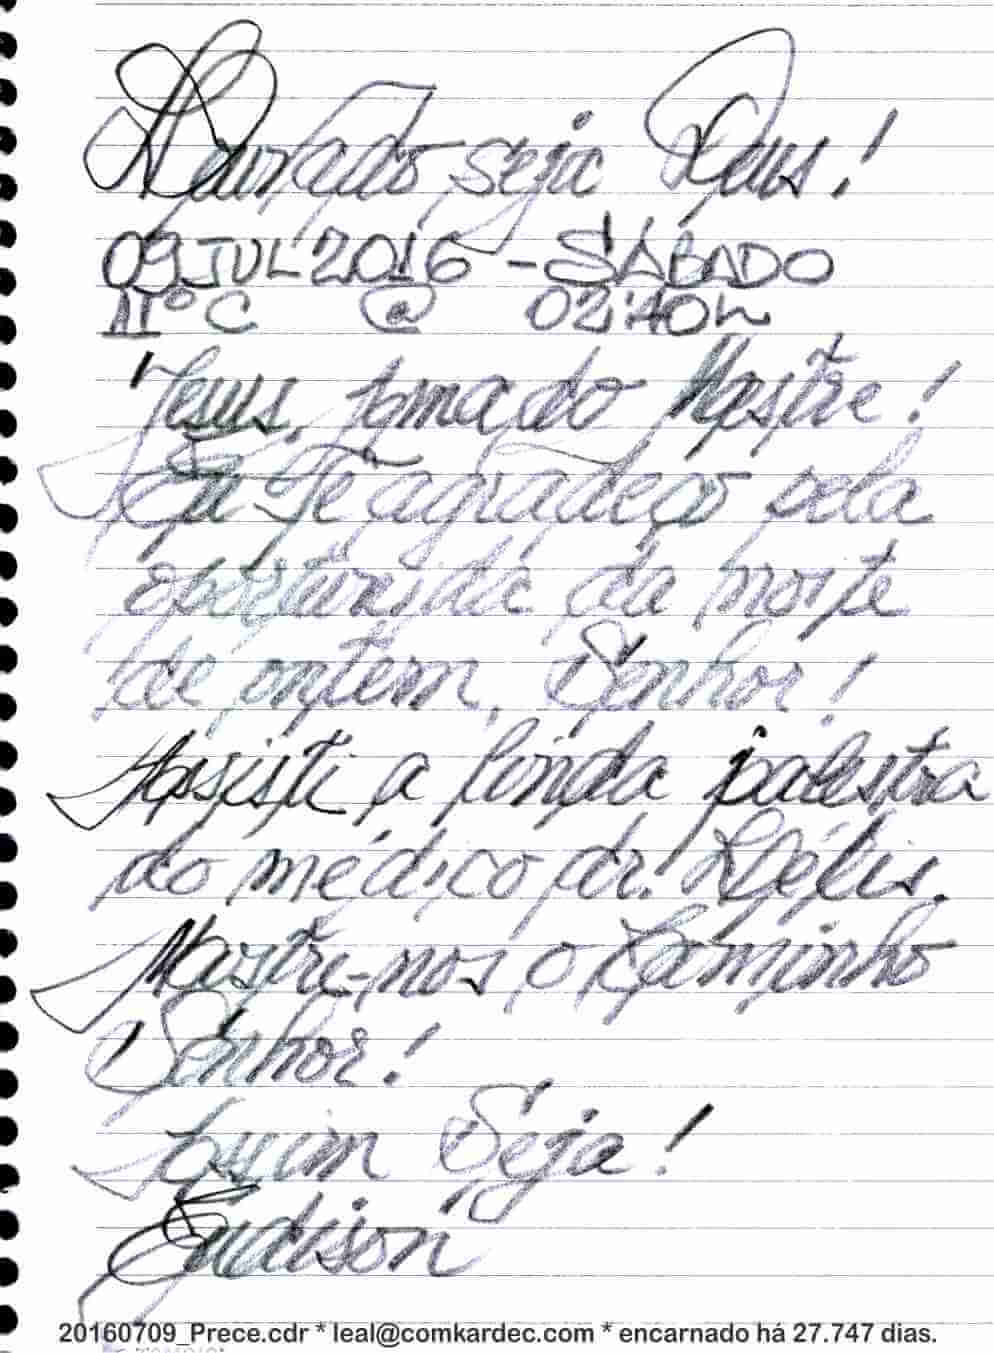 Louvado seja Deus!
09JUL2016 - SÁBADO
11°C @ 02:40h
Jesus, amado Mestre!
Eu Te agradeço pela
da noite
de ontem, Senhor!
Assisti a linda palestra
do médico dr. Délis.
Mostre-nos o Caminho
Senhor!
Assim Seja!
Eudison
20160709_Prece.cdr * leal@comkardec.com * encarnado há 27.747 dias.